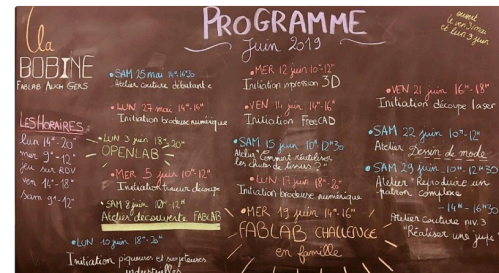 PROGRAMME
Juin 2019
ouvert
le ven 31 mai
et lun 3 juin
la
BOBINE
FABLAB AUCH GERS
LES HORAIRES :
lun 14h-20h
mer 9h-12h
jeu sur RDV
ven 14h-18h
sam 9h-12h
• SAM 25 mai 14h-16h30
Atelier couture débutant.e
• LUN 27 mai 14h-16h
Initiation brodeuse numérique
• LUN 3 juin 18h-20h
OPENLAB
• MER 5 juin 10h-12h
Initiation traceur découpe
• SAM 8 juin 10h-12h
Atelier découverte FABLAB
• LUN 10 juin 18h-20h
Initiation piqueuses et surjeteuses
industrielles
• MER 12 juin 10h-12h
Initiation impression 3D
• VEN 14 juin 14h-16h
Initiation FreeCAD
• SAM 15 juin 10h-12h30
Atelier "Comment réutiliser
les chutes de tissus ?"
• LUN 17 juin 18h-20h
Initiation brodeuse numérique
• MER 19 juin 14h-16h
FABLAB CHALLENGE
en famille
• VEN 21 juin 16h-18h
Initiation découpe laser
• SAM 22 juin 10h-12h
Atelier Dessin de mode
• SAM 29 juin -10h-12h30
Atelier "Reproduire un
patron complexe
-14h-16h30
Atelier Couture niv. 3
"Réaliser une jupe"